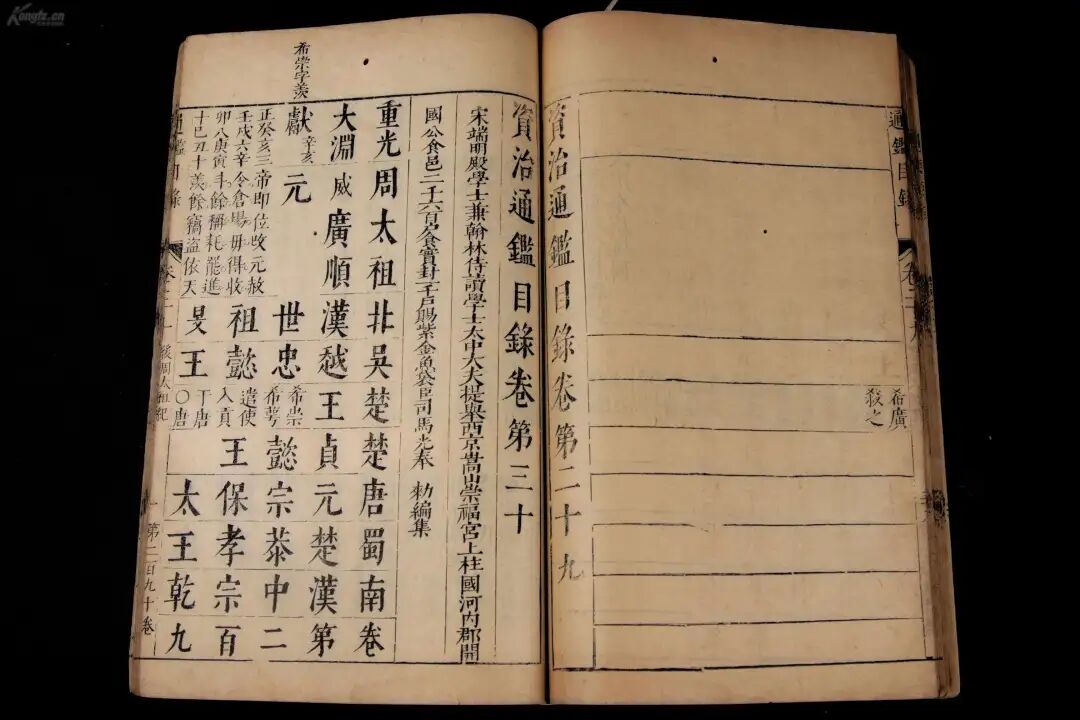 Kongfz.cn
通鑑目錄
卷二十九
希廣
殺之
資治通鑑目錄卷第二十九
資治通鑑目錄卷第三十
宋端明殿學士兼翰林侍讀學士太中大夫提舉西京嵩山崇福宮上柱國河內郡開
國公食邑二千六百戶食實封一千戶賜紫金魚袋臣司馬光奉 勅編集
重光周太祖北吳楚楚唐蜀南卷
大淵威廣順漢越王貞元楚漢第
希崇字羨
獻辛亥元世忠希崇希萼懿宗恭中二
正癸亥三帝即位改元赦
壬戌六辛令倉場毋得收
祖懿遣使入貢王保孝宗百
卯八庚寅斗餘稱耗罷進
十巳丑十羨餘竊盗依天
旻王于唐〇唐太王乾九
通鑑目錄
後周太祖紀
一
第二百九十卷